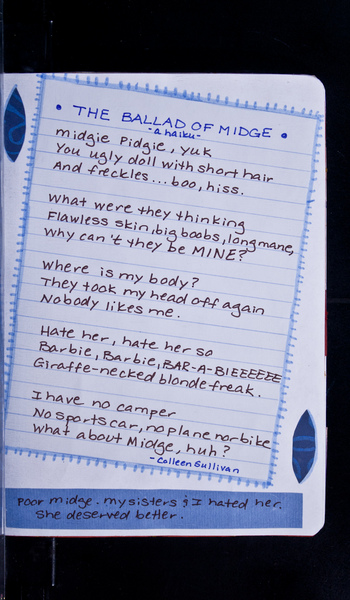 • THE BALLAD OF MIDGE •
- a haiku -
midgie Pidgie, yuk
You ugly doll with short hair
And freckles... boo, hiss.
What were they thinking
Flawless skin, big boobs, long mane,
Why can't they be MINE?
Where is my body?
They took my head off again
Nobody likes me.
Hate her, hate her so
Barbie, Barbie, BAR-A-BIEEEEEE
Giraffe-necked blonde freak.
I have no camper
No sports car, no plane nor bike
What about Midge, huh?
- Colleen Sullivan
Poor midge. my sisters & I hated her.
She deserved better.